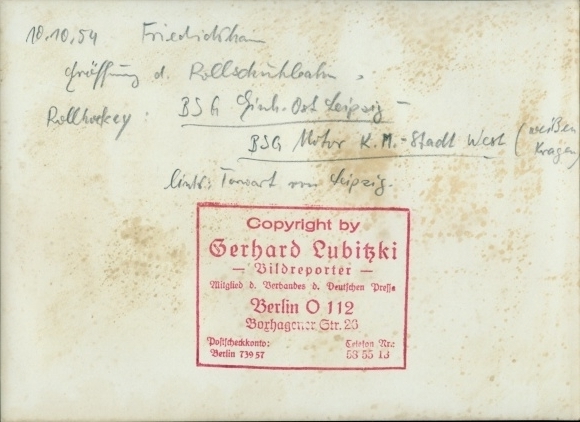 10.10.54 Friedrichshain
Eröffnung d. Rollschuhbahn.
Rollhockey: BSG Einh. Ost Leipzig -
BSG Motor K.M.-Stadt West (weißen
Kragen)
links: Torwart von Leipzig.
Copyright by
Gerhard Lubitzki
— Bildreporter —
Mitglied d. Verbandes d. Deutschen Presse
Berlin O 112
Boxhagener Str. 26
Postscheckkonto: Telefon Nr.:
Berlin 739 57 58 55 13